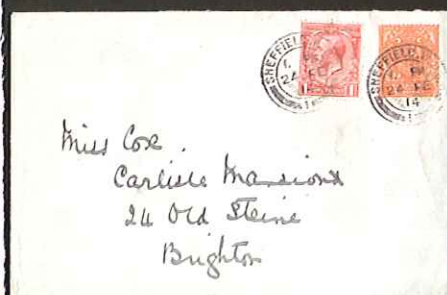 SHEFFIELD
24 FE
SHEFFIELD
PM
24 FE
14
Miss Coxe.
Carlisle Mansions
24 Old Steine
Brighton